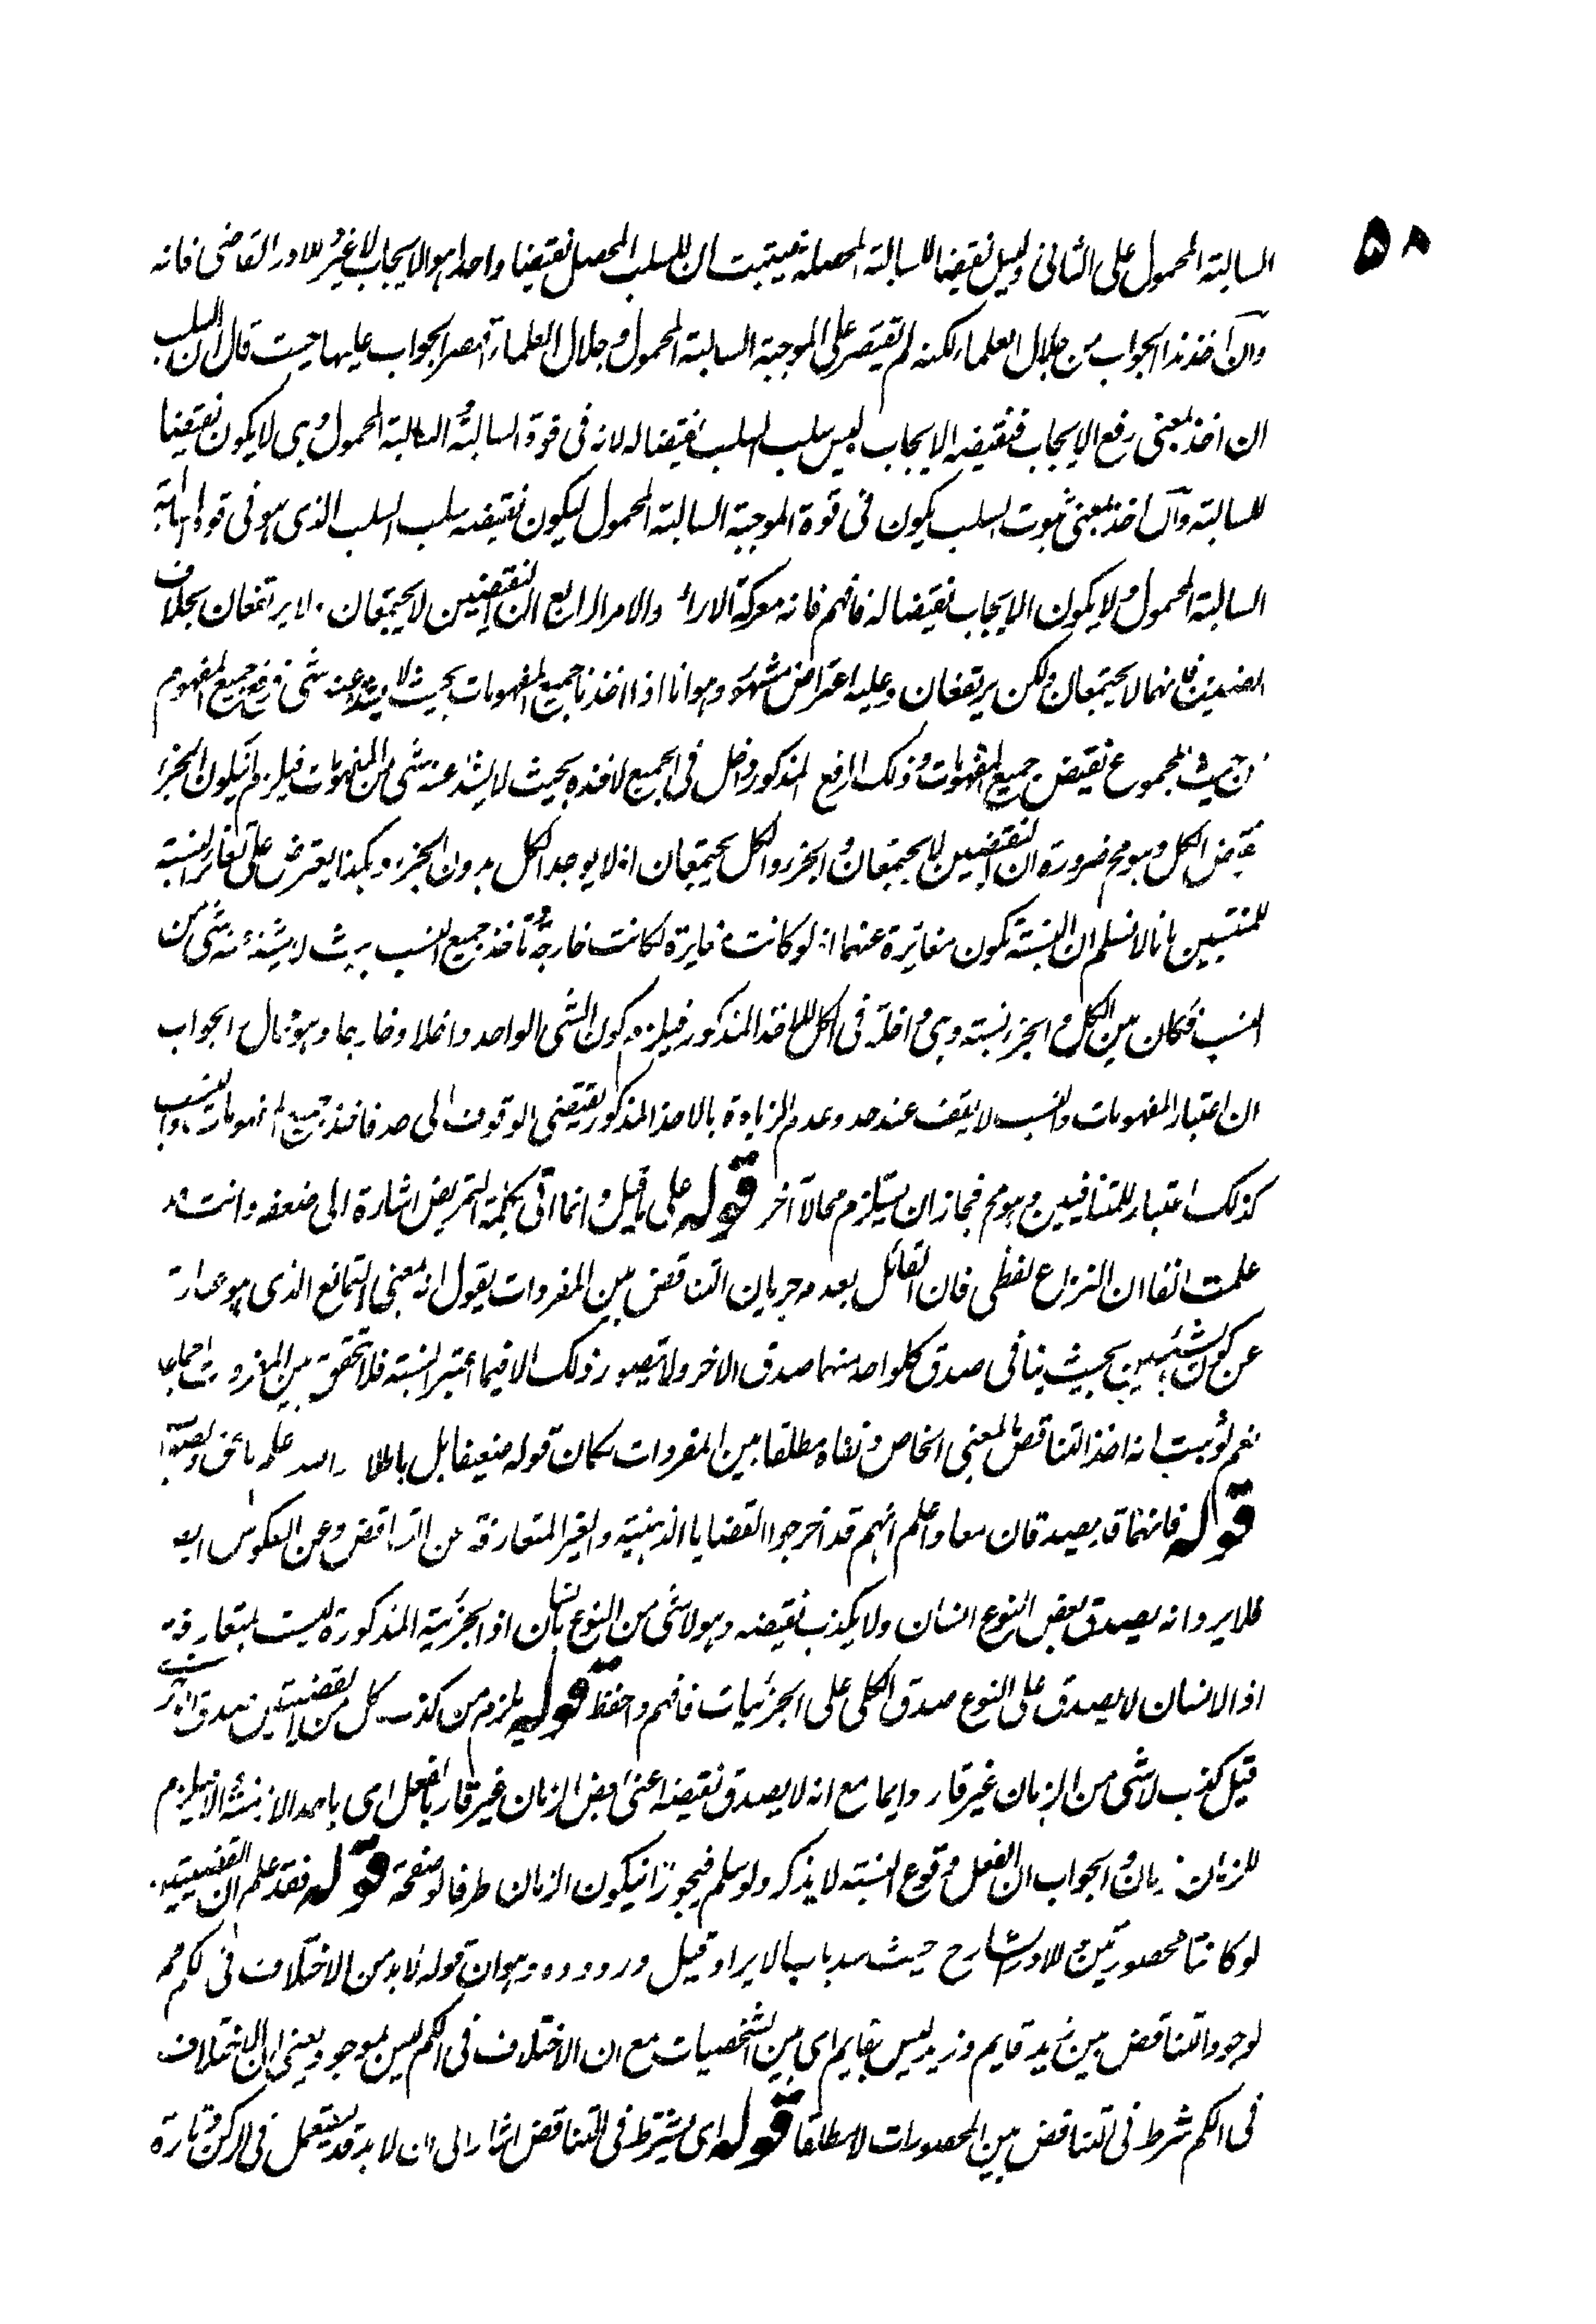 ٥٨
السالبة المحمول على الثانى وليس نقيضا للسالبة المحصلة فيثبت ان للسلب المحصل نقيضا واحدا هو الايجاب لا غير وللہ در القاضى فانه
وان اخذ هذا الجواب من جلال العلماء لكنه لم يقتصر على الموجبة السالبة المحمول وجلال العلماء قصر الجواب عليها حيث قال ان السلب
ان اخذ بمعنى رفع الايجاب فنقيضه الايجاب ليس سلب السلب نقيضا له لانه فى قوة السالبة السالبة المحمول وهى لا يكون نقيضا
للسالبة وان اخذ بمعنى ثبوت السلب يكون فى قوة الموجبة السالبة المحمول ليكون نقيضه سلب السلب الذى هو فى قوة السالبة
السالبة المحمول ولا يكون الايجاب نقيضا له فافهم فانه معركة الاراء والامر الرابع ان النقيضين لا يجتمعان ولا يرتفعان بخلاف
الضدين فانهما لا يجتمعان ولكن يرتفعان وعليه اعتراض مشهور وهو انا اذا اخذنا جميع المفهومات بحيث لا يشذ عنه شى فرفع جميع المفهوم
من حيث المجموع نقيض جميع المفهومات وذلك الرفع المذكور داخل فى الجميع لاخذه بحيث لا يشذ عنه شى من المفهومات فيلزم ان يكون الجزء
نقيض الكل وهو مح ضرورة ان النقيضين لا يجتمعان والجزء والكل يجتمعان اذ لا يوجد الكل بدون الجزء وهكذا يعترض على تغاير النسبة
للمنتسبين بانا لا نسلم ان النسبة تكون مغائرة عنهما اذ لو كانت مغايرة لكانت خارجة فاخذ جميع النسب بحيث لا يشذ عنه شى من
النسب فكان بين الكل والجزء نسبة وهى داخلة فى الكل للاخذ المذكور فيلزم كون الشى الواحد داخلا وخارجا وهو مح قال الجواب
ان اعتبار المفهومات والنسب لا يقف عند حد وعدم الزيادة بالاخذ المذكور يقتضى الوقوف الى حد فاخذ جميع المفهومات والنسب
كذلك اعتبار للمتنافيين وهو مح فجاز ان يستلزم محالا آخر قوله على ما قيل وانما اتى بكلمة التمريض اشارة الى ضعفه وانت قد
علمت انفا ان النزاع لفظى فان القائل بعدم جريان التناقض بين المفردات يقول انه بمعنى التمانع الذى هو عبارة
عن كون الشيئين بحيث ينافى صدق كل واحد منهما صدق الاخر ولا يتصور ذلك الا فيما اعتبر النسبة فلا تحقق بين المفردات اجماعا
نعم لو ثبت انه اخذ التناقض بالمعنى الخاص ونفاه مطلقا بين المفردات لكان قوله ضعيفا بل باطلا والله علم بالحق والصواب
قوله فانهما قد يصدقان معا واعلم انهم قد اخرجوا القضايا الذهنية والغير المتعارفة عن التناقض وعن العكوس ايضا
فلا يرد انه يصدق بعض النوع انسان ولا يكذب نقيضه وهو لا شى من النوع بانسان اذ الجزئية المذكورة ليست بمتعارفة
اذ الانسان لا يصدق على النوع صدق الكلى على الجزئيات فافهم واحفظ قوله يلزم من كذب كل من القضيتين صدق الاخرى
قيل كذب لا شى من الزمان غير قار دايما مع انه لا يصدق نقيضه اعنى بعض الزمان غير قار بالفعل اى باحد الازمنة والا فيلزم
للزمان زمان والجواب ان الفعل وقوع النسبة لا يذكر ولو سلم فيجوز ان يكون الزمان ظرفا لوصفه قوله فقد علم ان القضيتين
لو كانتا محصورتين وللہ در الشارح حيث سد باب الايراد قيل وروده وهو ان قوله لا بد من الاختلاف فى الكم مح
لوجود التناقض بين زيد قايم وزيد ليس بقايم اى بين الشخصيات مع ان الاختلاف فى الكم ليس بموجود يعنى ان الاختلاف
فى الكم شرط فى التناقض بين المحصورات لا مطلقا قوله اى يشترط فى التناقض اشار الى ان لا بد قد يستعمل فى الركن وتارة